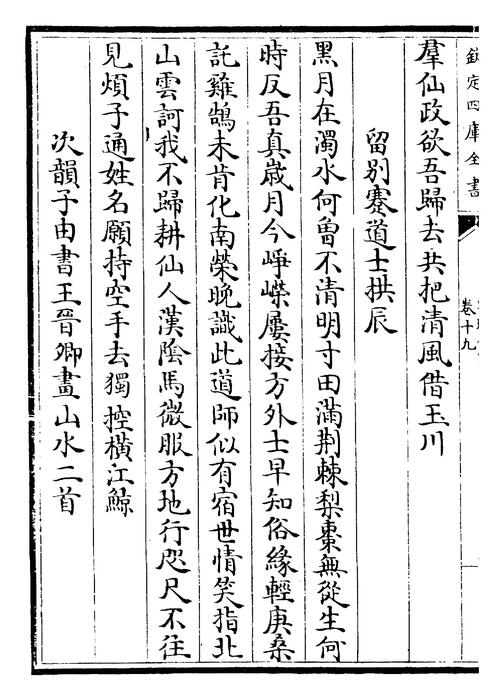 欽定四庫全書
卷十九
羣仙政欲吾歸去共把清風借玉川
留别蹇道士拱辰
黑月在濁水何曽不清明寸田滿荆棘梨棗無從生何
時反吾真歳月今崢嶸屢接方外士早知俗緣輕庚桑
託雞鵠未肯化南榮晚識此道師似有宿世情笑指北
山雲訶我不歸耕仙人漢陰馬微服方地行咫尺不往
見煩子通姓名願持空手去獨控横江鯨
次韻子由書王晉卿畫山水二首